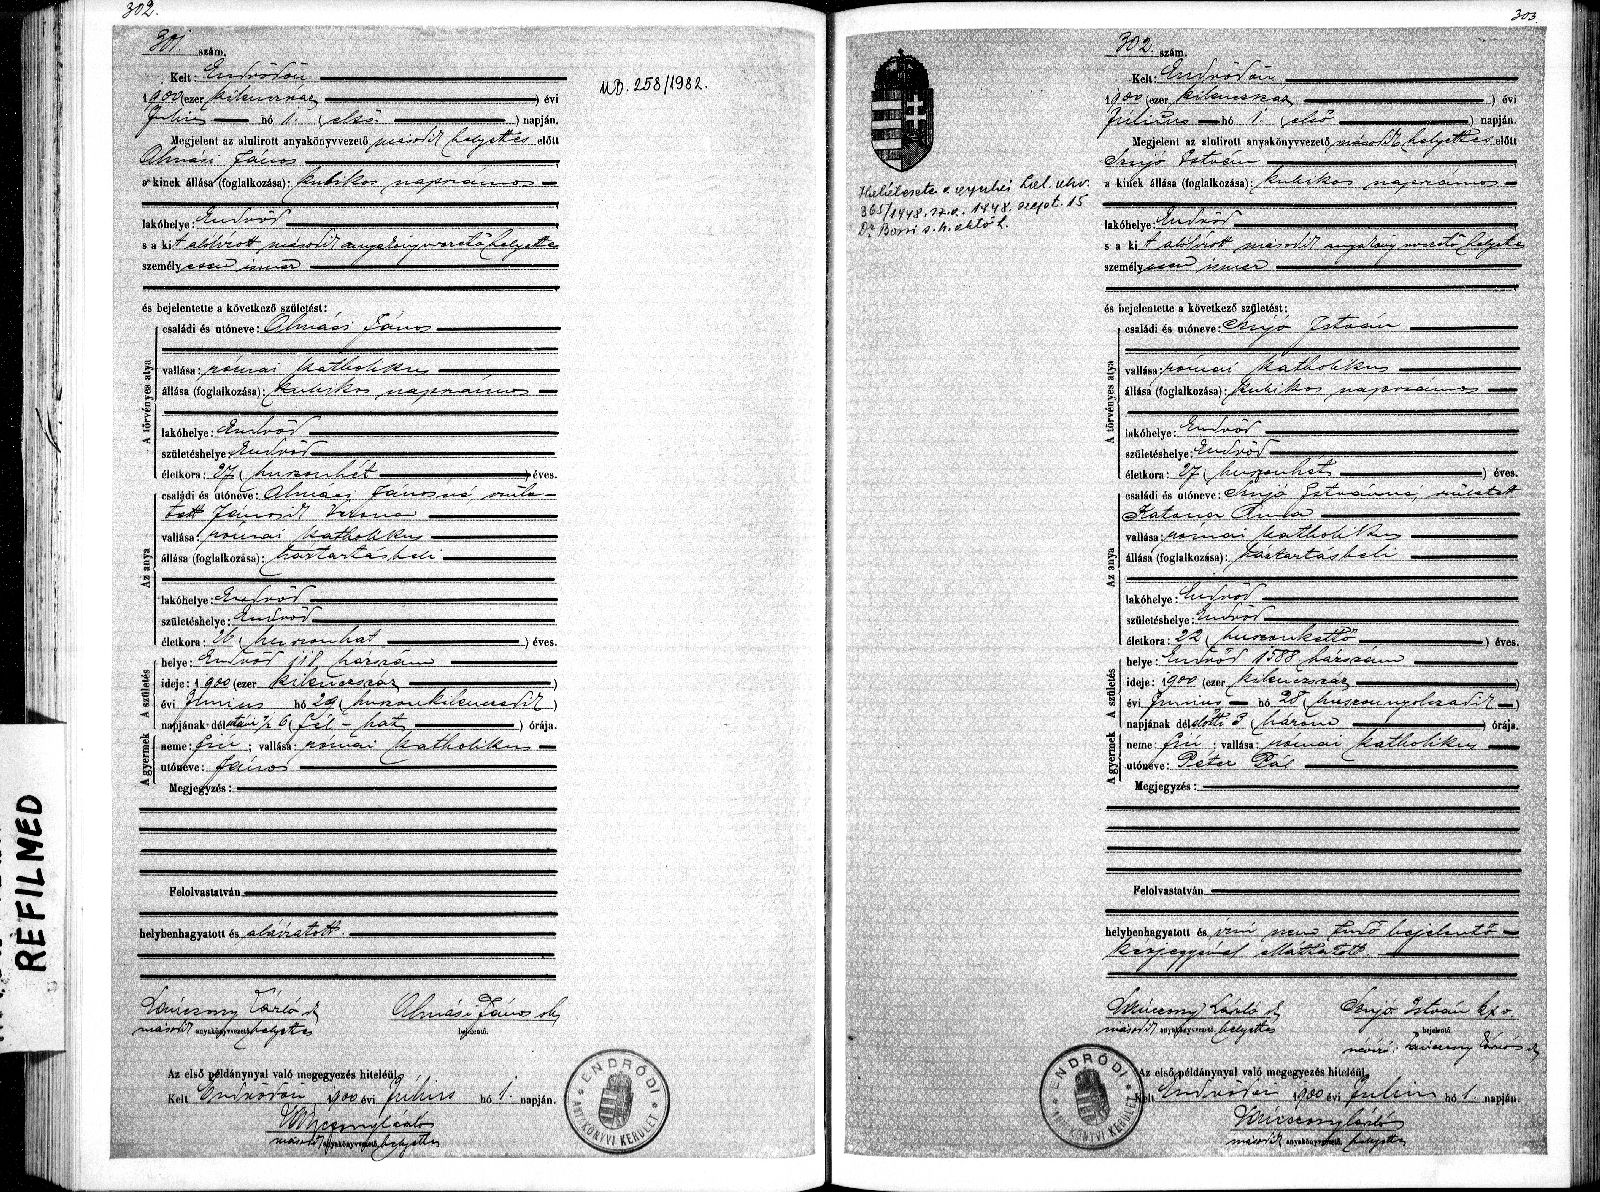 302.
301 szám.
Kelt: Endrődön
1900 (ezer kilencszáz) évi
Julius hó 1. (első) napján.
Megjelent az alulirott anyakönyvvezető másodk helyettes előtt
Almási János
a kinek állása (foglalkozása): kubikos napszámos
lakóhelye: Endrőd
s a kit alólirott másodk anyakönyvvezető helyettes
személyesen ismer
és bejelentette a következő születést:
A törvényes atya
családi és utóneve: Almási János
vallása: római katholikus
állása (foglalkozása): kubikos napszámos
lakóhelye: Endrőd
születéshelye: Endrőd
életkora: 27 (huszonhét) éves.
Az anya
családi és utóneve: Almási Jánosné szüle-
tett Verona
vallása: római katholikus
állása (foglalkozása): háztartásbeli
lakóhelye: Endrőd
születéshelye: Endrőd
életkora: 26 (huszonhat) éves.
A születés
helye: Endrőd házszám
ideje: 1900 (ezer kilenczszáz)
évi Junius hó 29 (huszonkilenczedik)
napjának délután 1/2 6 (fél-hat) órája.
A gyermek
neme: fiú; vallása: római katholikus
utóneve: János
Megjegyzés:
Felolvastatván
helybenhagyatott és aláiratott.
László sk
Almási János sk
másodk anyakönyvvezető helyettes
bejelentő.
Az első példánynyal való megegyezés hiteléül
Kelt Endrődön 1900 évi Július hó 1. napján.
László
másodk anyakönyvvezető helyettes
ENDRŐDI ANYAKÖNYVI KERÜLET
MD. 258/1982.
303
302. szám.
Kelt: Endrődön
1900 (ezer kilencszáz) évi
Julius hó 1. (első) napján.
Megjelent az alulirott anyakönyvvezető másodk helyettes előtt
István
a kinek állása (foglalkozása): kubikos napszámos
lakóhelye: Endrőd
s a kit alólirott másodk anyakönyvvezető helyettes
személyesen ismer
és bejelentette a következő születést:
A törvényes atya
családi és utóneve: István
vallása: római katholikus
állása (foglalkozása): kubikos napszámos
lakóhelye: Endrőd
születéshelye: Endrőd
életkora: 27 (huszonhét) éves.
Az anya
családi és utóneve: Istvánné, született
Katona
vallása: római katholikus
állása (foglalkozása): háztartásbeli
lakóhelye: Endrőd
születéshelye: Endrőd
életkora: 22 (huszonkettő) éves.
A születés
helye: Endrőd 1588 házszám
ideje: 1900 (ezer kilenczszáz)
évi Junius hó 28 (huszonnyolczadik)
napjának délelőtt 3 (három) órája.
A gyermek
neme: fiú; vallása: római katholikus
utóneve: Péter Pál
Megjegyzés:
Felolvastatván
helybenhagyatott és irni nem tudó bejelentő
kézjegyével elláttatott.
László sk
István
másodk anyakönyvvezető helyettes
bejelentő
névíró:
Az első példánynyal való megegyezés hiteléül
Kelt Endrődön 1900 évi Julius hó 1. napján.
László
másodk anyakönyvvezető helyettes
ENDRŐDI ANYAKÖNYVI KERÜLET
1948. szept. 15
REFILMED